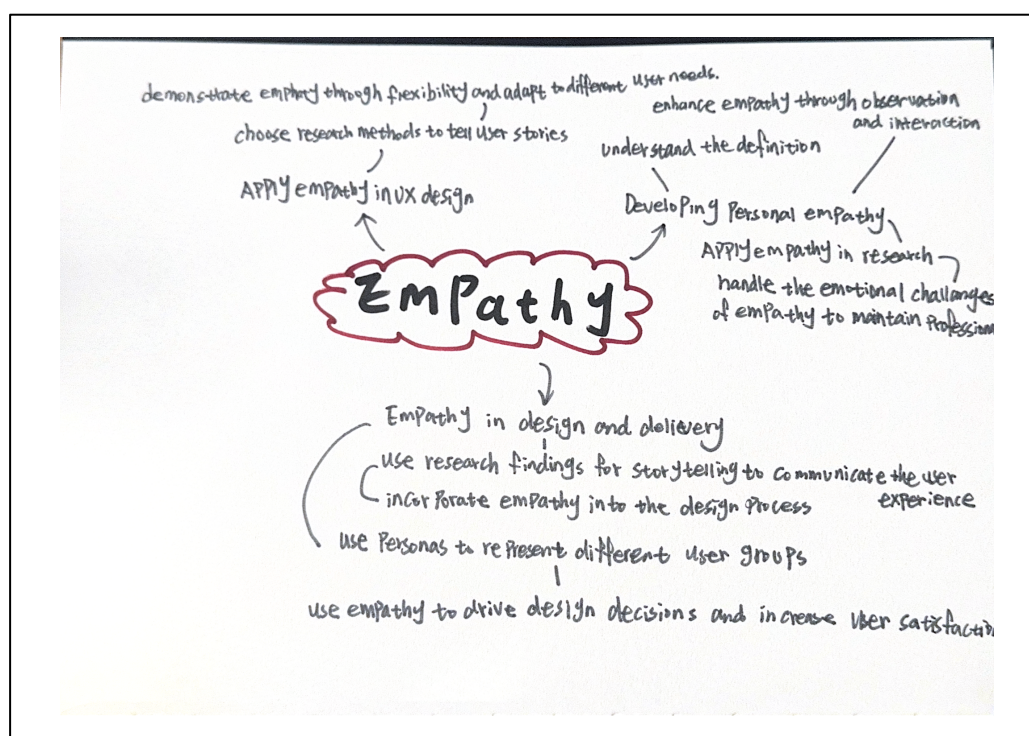 demonstrate emphaty through flexibility and adapt to different user needs.
choose research methods to tell user stories
APPly empathy in UX design
enhance empathy through observation
and interaction
understand the definition
Developing Personal empathy
APPly empathy in research
handle the emotional challanges
of empathy to maintain Profession
EmPathy
Empathy in design and delivery
use research findings for storytelling to communicate the user
experience
incorporate empathy into the design Process
use Personas to rePresent different user groups
use empathy to drive design decisions and increase user satisfaction